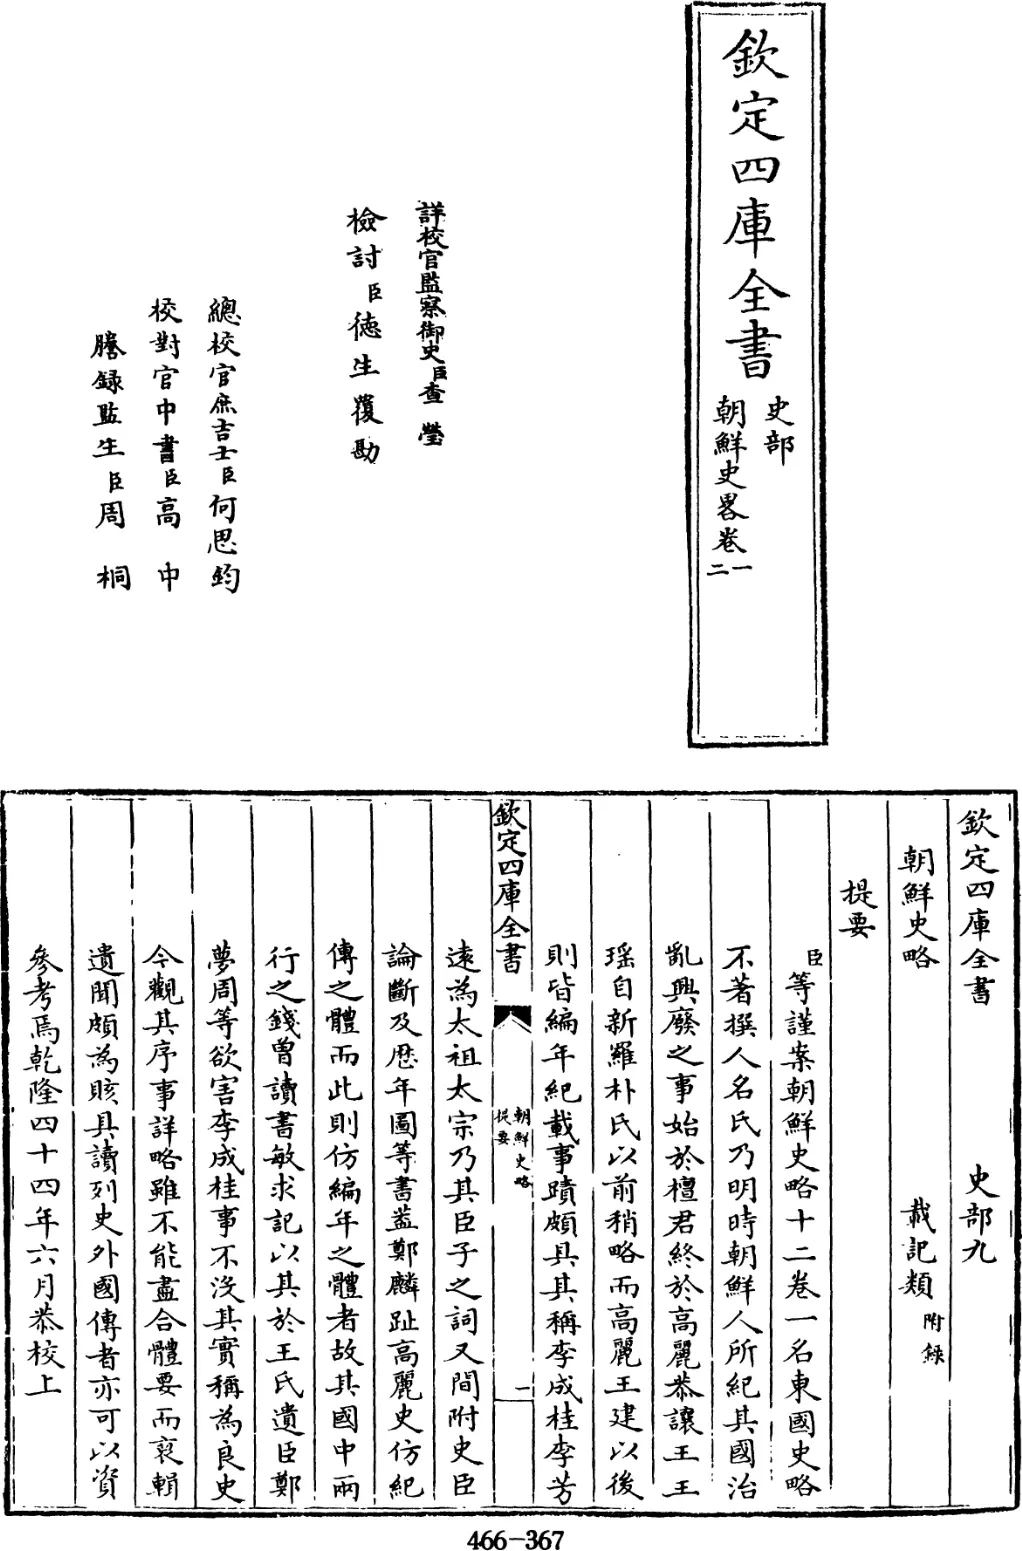 欽定四庫全書
史部
朝鮮史畧卷一二
詳校官監察御史臣查瑩
檢討臣德生覆勘
總校官庶吉士臣何思鈞
校對官中書臣高中
謄錄監生臣周桐
欽定四庫全書 史部九
朝鮮史略 載記類附錄
提要
臣等謹案朝鮮史略十二卷一名東國史略
不著撰人名氏乃明時朝鮮人所紀其國治
亂興廢之事始於檀君終於高麗恭讓王王
瑶自新羅朴氏以前稍略而高麗王建以後
則皆編年紀載事蹟頗具其稱李成桂李芳
欽定四庫全書 朝鮮史略提要 一
遠為太祖太宗乃其臣子之詞又間附史臣
論斷及歴年圖等書蓋鄭麟趾高麗史仿紀
傳之體而此則仿編年之體者故其國中兩
行之錢曾讀書敏求記以其於王氏遺臣鄭
夢周等欲害李成桂事不沒其實稱為良史
今觀其序事詳略雖不能盡合體要而裒輯
遺聞頗為賅具讀列史外國傳者亦可以資
參考焉乾隆四十四年六月恭校上
466-367